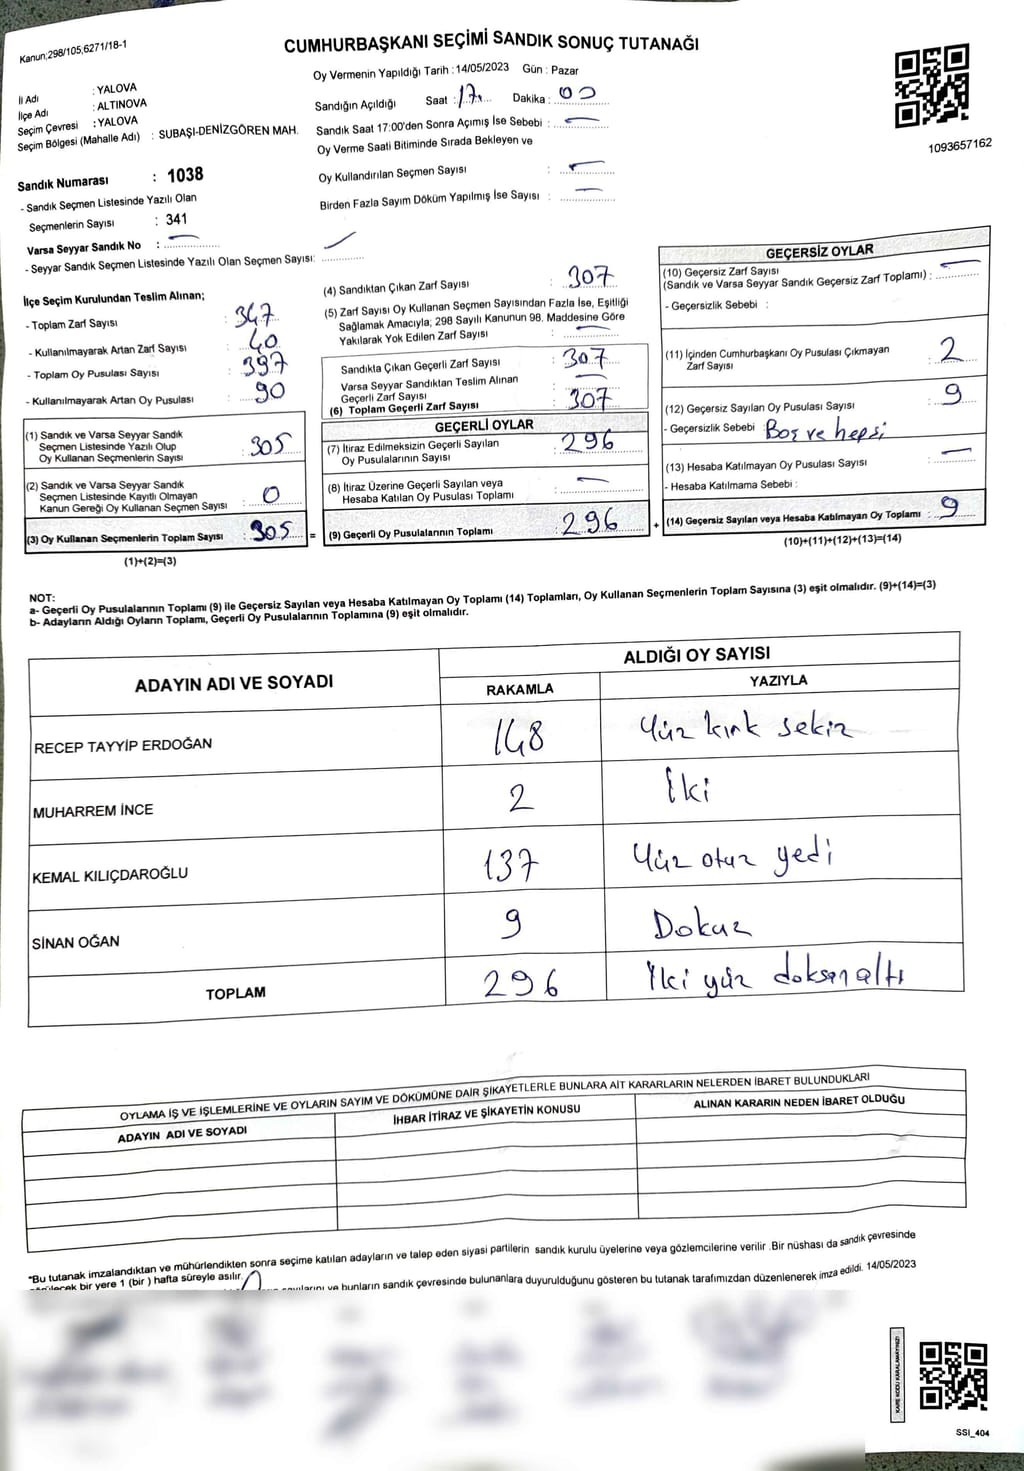 Kanun;298/105;6271/18-1
CUMHURBAŞKANI SEÇİMİ SANDIK SONUÇ TUTANAĞI
İl Adı : YALOVA
İlçe Adı : ALTINOVA
Seçim Çevresi : YALOVA
Seçim Bölgesi (Mahalle Adı) : SUBAŞI-DENİZGÖREN MAH.
Sandık Numarası : 1038
- Sandık Seçmen Listesinde Yazılı Olan
Seçmenlerin Sayısı : 341
Varsa Seyyar Sandık No :
- Seyyar Sandık Seçmen Listesinde Yazılı Olan Seçmen Sayısı:
Oy Vermenin Yapıldığı Tarih : 14/05/2023 Gün : Pazar
Sandığın Açıldığı Saat : 17 Dakika : 00
Sandık Saat 17:00'den Sonra Açımış İse Sebebi :
Oy Verme Saati Bitiminde Sırada Bekleyen ve
Oy Kullandırılan Seçmen Sayısı :
Birden Fazla Sayım Döküm Yapılmış İse Sayısı :
1093657162
İlçe Seçim Kurulundan Teslim Alınan;
- Toplam Zarf Sayısı : 347
- Kullanılmayarak Artan Zarf Sayısı : 40
- Toplam Oy Pusulası Sayısı : 397
- Kullanılmayarak Artan Oy Pusulası : 90
(1) Sandık ve Varsa Seyyar Sandık
Seçmen Listesinde Yazılı Olup
Oy Kullanan Seçmenlerin Sayısı : 305
(2) Sandık ve Varsa Seyyar Sandık
Seçmen Listesinde Kayıtlı Olmayan
Kanun Gereği Oy Kullanan Seçmen Sayısı : 0
(3) Oy Kullanan Seçmenlerin Toplam Sayısı : 305
(1)+(2)=(3)
=
(4) Sandıktan Çıkan Zarf Sayısı : 307
(5) Zarf Sayısı Oy Kullanan Seçmen Sayısından Fazla İse, Eşitliği
Sağlamak Amacıyla; 298 Sayılı Kanunun 98. Maddesine Göre
Yakılarak Yok Edilen Zarf Sayısı :
Sandıkta Çıkan Geçerli Zarf Sayısı : 307
Varsa Seyyar Sandıktan Teslim Alınan
Geçerli Zarf Sayısı :
(6) Toplam Geçerli Zarf Sayısı : 307
GEÇERLİ OYLAR
(7) İtiraz Edilmeksizin Geçerli Sayılan
Oy Pusulalarının Sayısı : 296
(8) İtiraz Üzerine Geçerli Sayılan veya
Hesaba Katılan Oy Pusulası Toplamı :
(9) Geçerli Oy Pusulalarının Toplamı : 296
+
GEÇERSİZ OYLAR
(10) Geçersiz Zarf Sayısı
(Sandık ve Varsa Seyyar Sandık Geçersiz Zarf Toplamı) :
- Geçersizlik Sebebi :
(11) İçinden Cumhurbaşkanı Oy Pusulası Çıkmayan
Zarf Sayısı : 2
(12) Geçersiz Sayılan Oy Pusulası Sayısı : 9
- Geçersizlik Sebebi : Boş ve hepsi
(13) Hesaba Katılmayan Oy Pusulası Sayısı :
- Hesaba Katılmama Sebebi :
(14) Geçersiz Sayılan veya Hesaba Katılmayan Oy Toplamı : 9
(10)+(11)+(12)+(13)=(14)
NOT:
a- Geçerli Oy Pusulalarının Toplamı (9) ile Geçersiz Sayılan veya Hesaba Katılmayan Oy Toplamı (14) Toplamları, Oy Kullanan Seçmenlerin Toplam Sayısına (3) eşit olmalıdır. (9)+(14)=(3)
b- Adayların Aldığı Oyların Toplamı, Geçerli Oy Pusulalarının Toplamına (9) eşit olmalıdır.
ADAYIN ADI VE SOYADI ALDIĞI OY SAYISI
RAKAMLA YAZIYLA
RECEP TAYYİP ERDOĞAN 148 Yüz kırk sekiz
MUHARREM İNCE 2 İki
KEMAL KILIÇDAROĞLU 137 Yüz otuz yedi
SİNAN OĞAN 9 Dokuz
TOPLAM 296 İki yüz doksan altı
OYLAMA İŞ VE İŞLEMLERİNE VE OYLARIN SAYIM VE DÖKÜMÜNE DAİR ŞİKAYETLERLE BUNLARA AİT KARARLARIN NELERDEN İBARET BULUNDUKLARI
ADAYIN ADI VE SOYADI İHBAR İTİRAZ VE ŞİKAYETİN KONUSU ALINAN KARARIN NEDEN İBARET OLDUĞU
"Bu tutanak imzalandıktan ve mühürlendikten sonra seçime katılan adayların ve talep eden siyasi partilerin sandık kurulu üyelerine veya gözlemcilerine verilir .Bir nüshası da sandık çevresinde
bir yere 1 (bir ) hafta süreyle asılır.
ve bunların sandık çevresinde bulunanlara duyurulduğunu gösteren bu tutanak tarafımızdan düzenlenerek imza edildi. 14/05/2023
KARE KODU KARALAMAYINIZ!
SSI_404